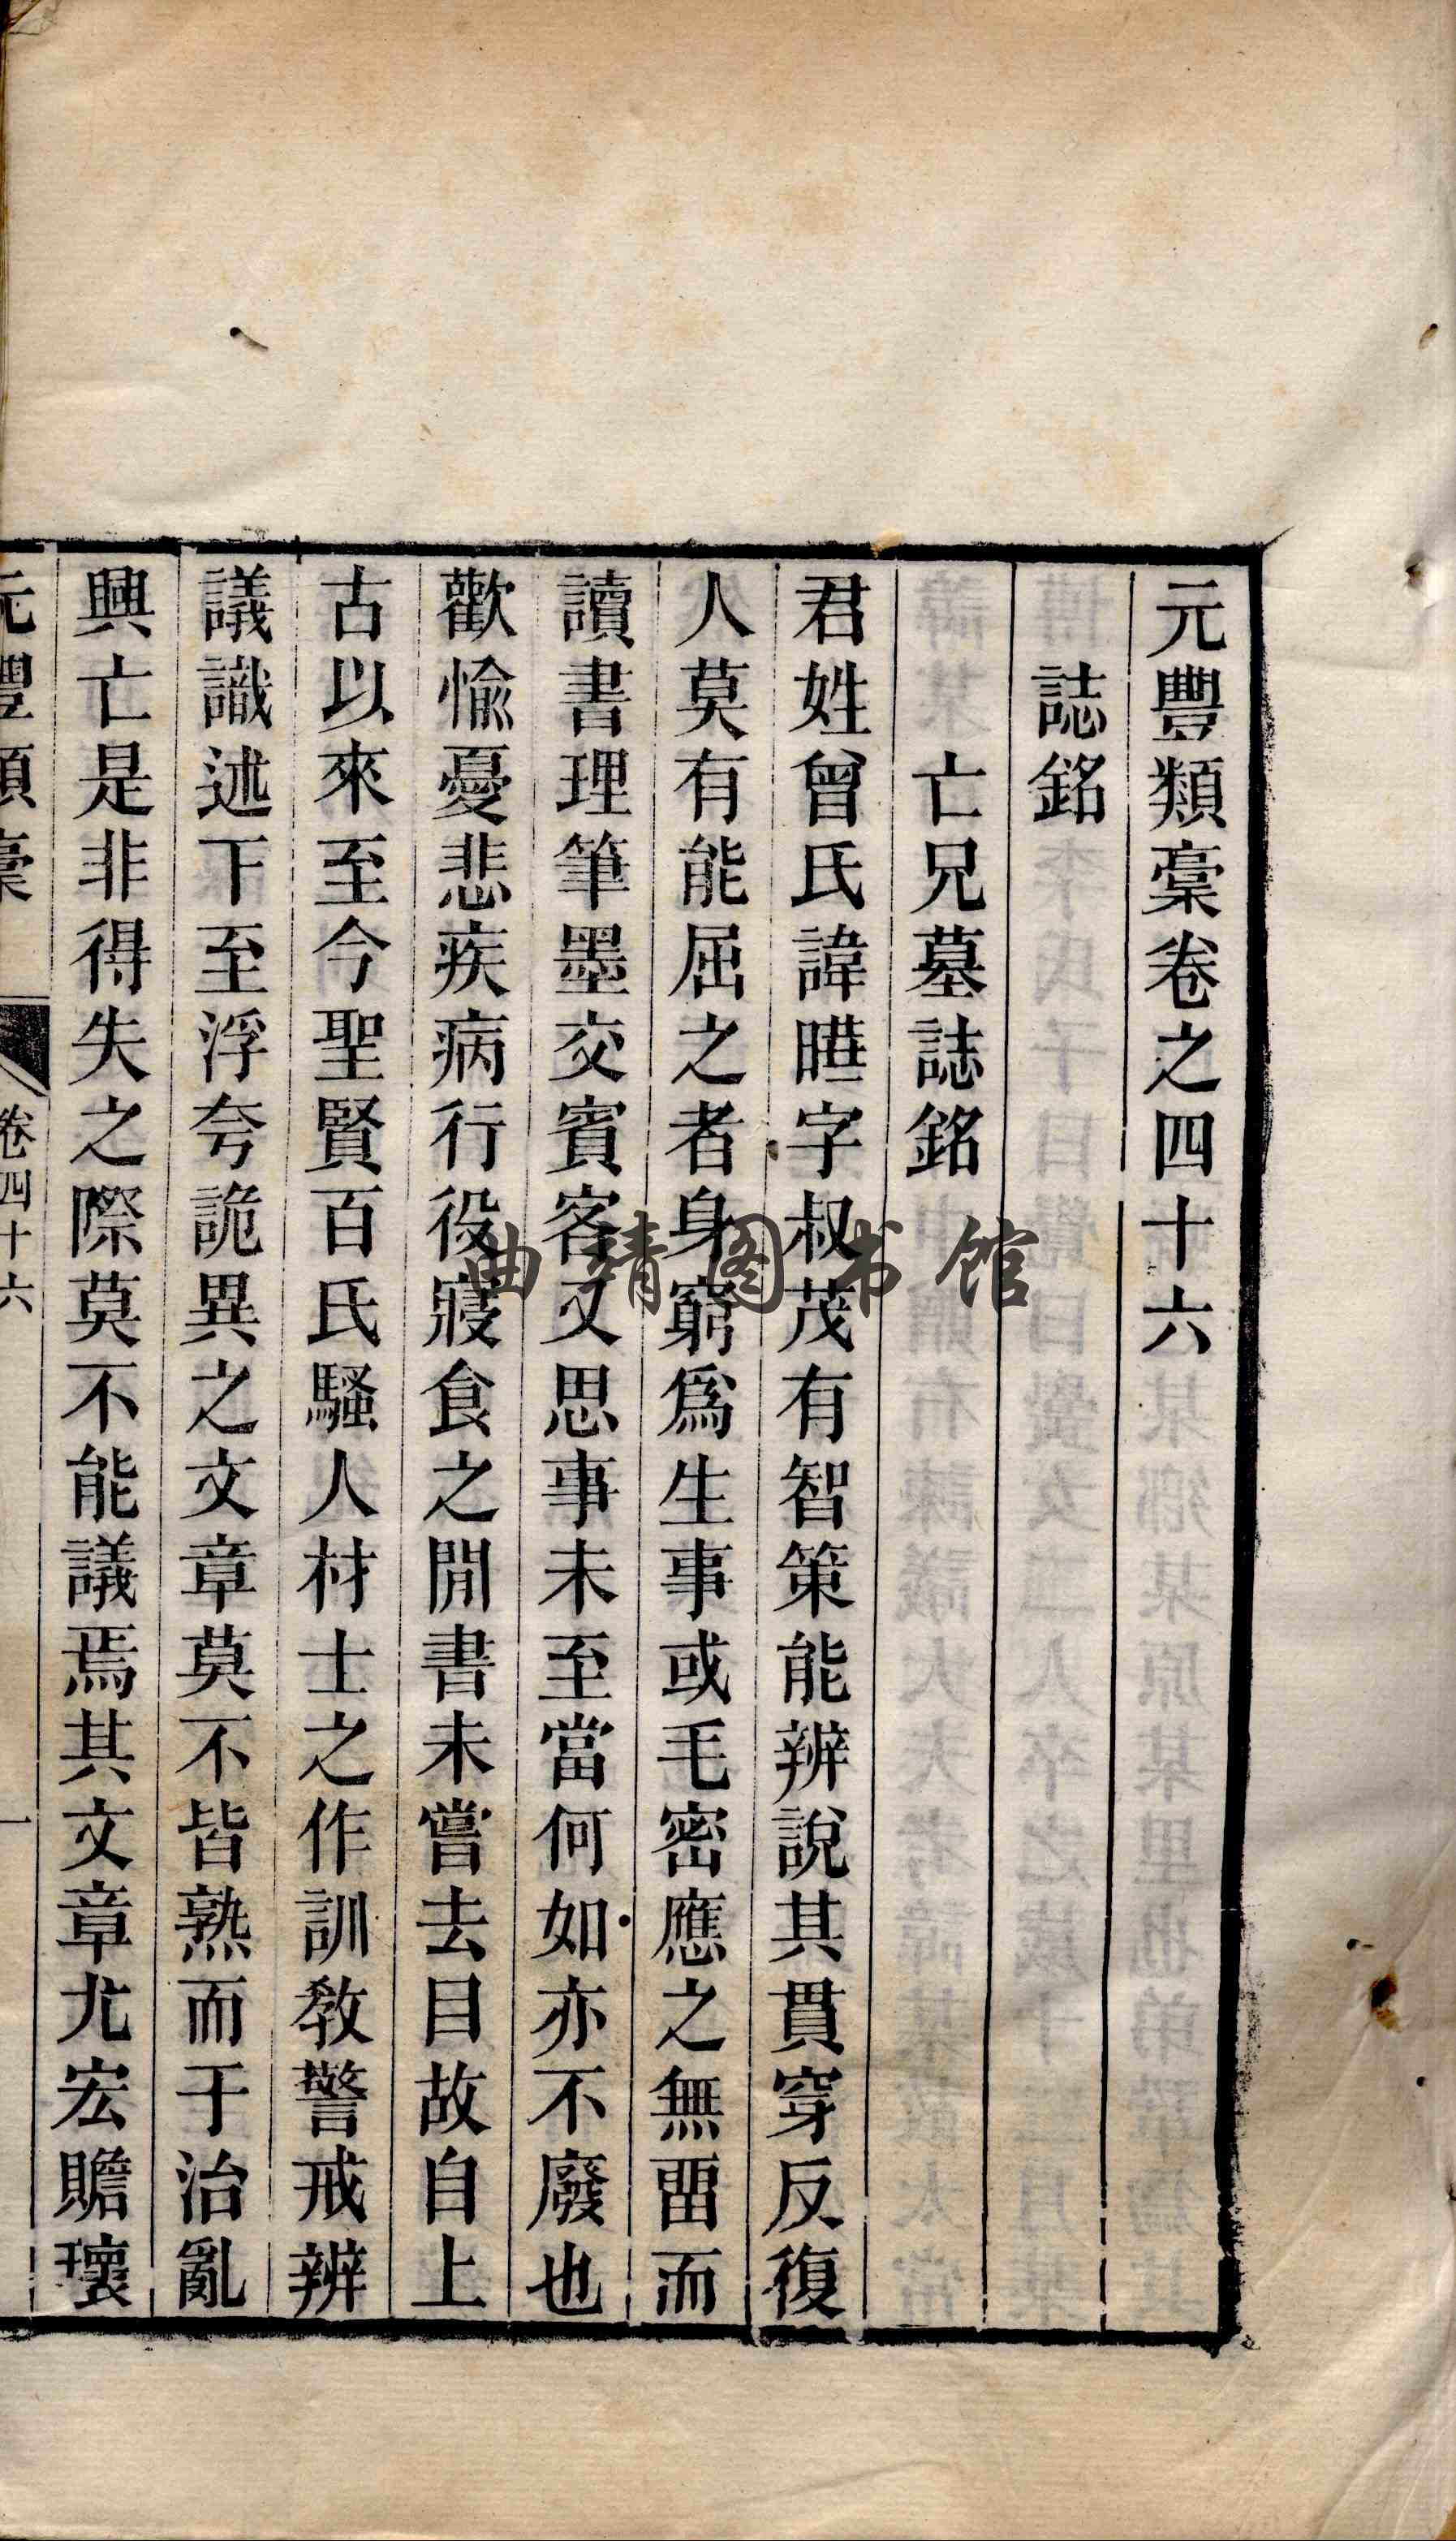 元豐類稾卷之四十六
誌銘
亡兄墓誌銘
君姓曾氏諱曄字叔茂有智策能辨說其貫穿反復
人莫有能屈之者身窮爲生事或毛密應之無畱而
讀書理筆墨交賓客又思事未至當何如亦不廢也
歡愉憂悲疾病行役寢食之閒書未嘗去目故自上
古以來至今聖賢百氏騷人材士之作訓敎警戒辨
議識述下至浮夸詭異之文章莫不皆熟而于治亂
興亡是非得失之際莫不能議焉其文章尤宏贍瓌
元豐類稾 卷四十六 一
曲靖图书馆